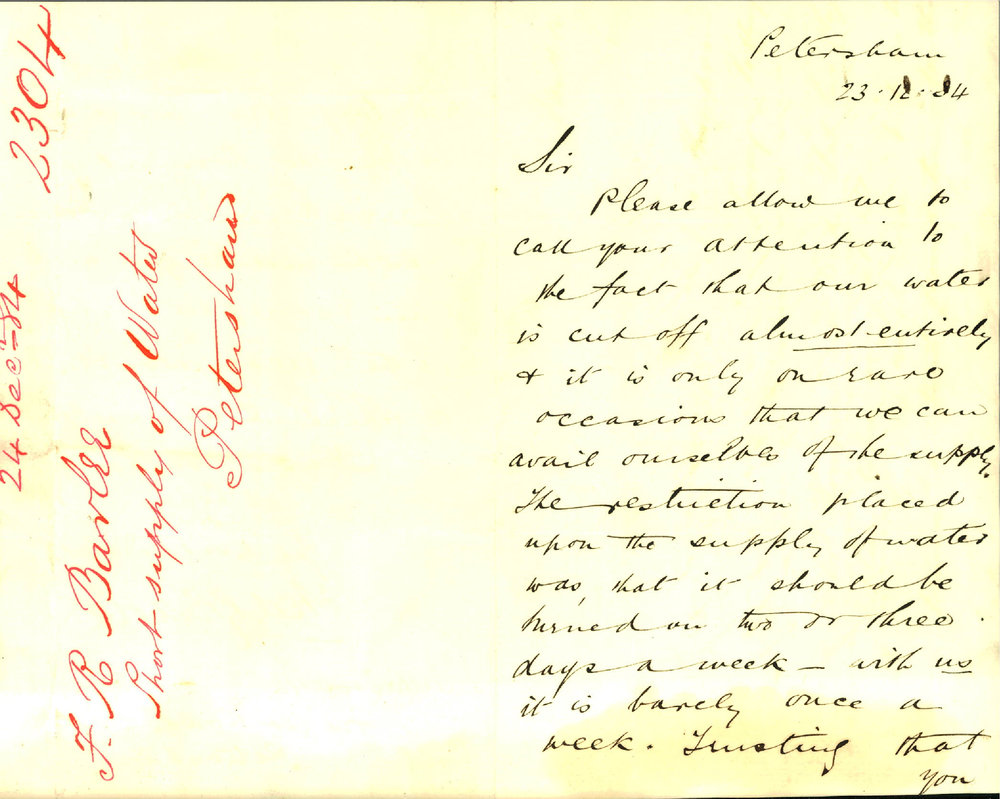 2304
24 Decr-84
F. R Barlee
Short supply of Water
Petersham
Petersham
23.12.84
Sir
Please allow me to
call your attention to
the fact that our water
is cut off almost entirely
& it is only on rare
occasions that we can
avail ourselves of the supply.
The restriction placed
upon the supply of water
was, that it should be
turned on two or three
days a week – with us
it is barely once a
week. Trusting that
you